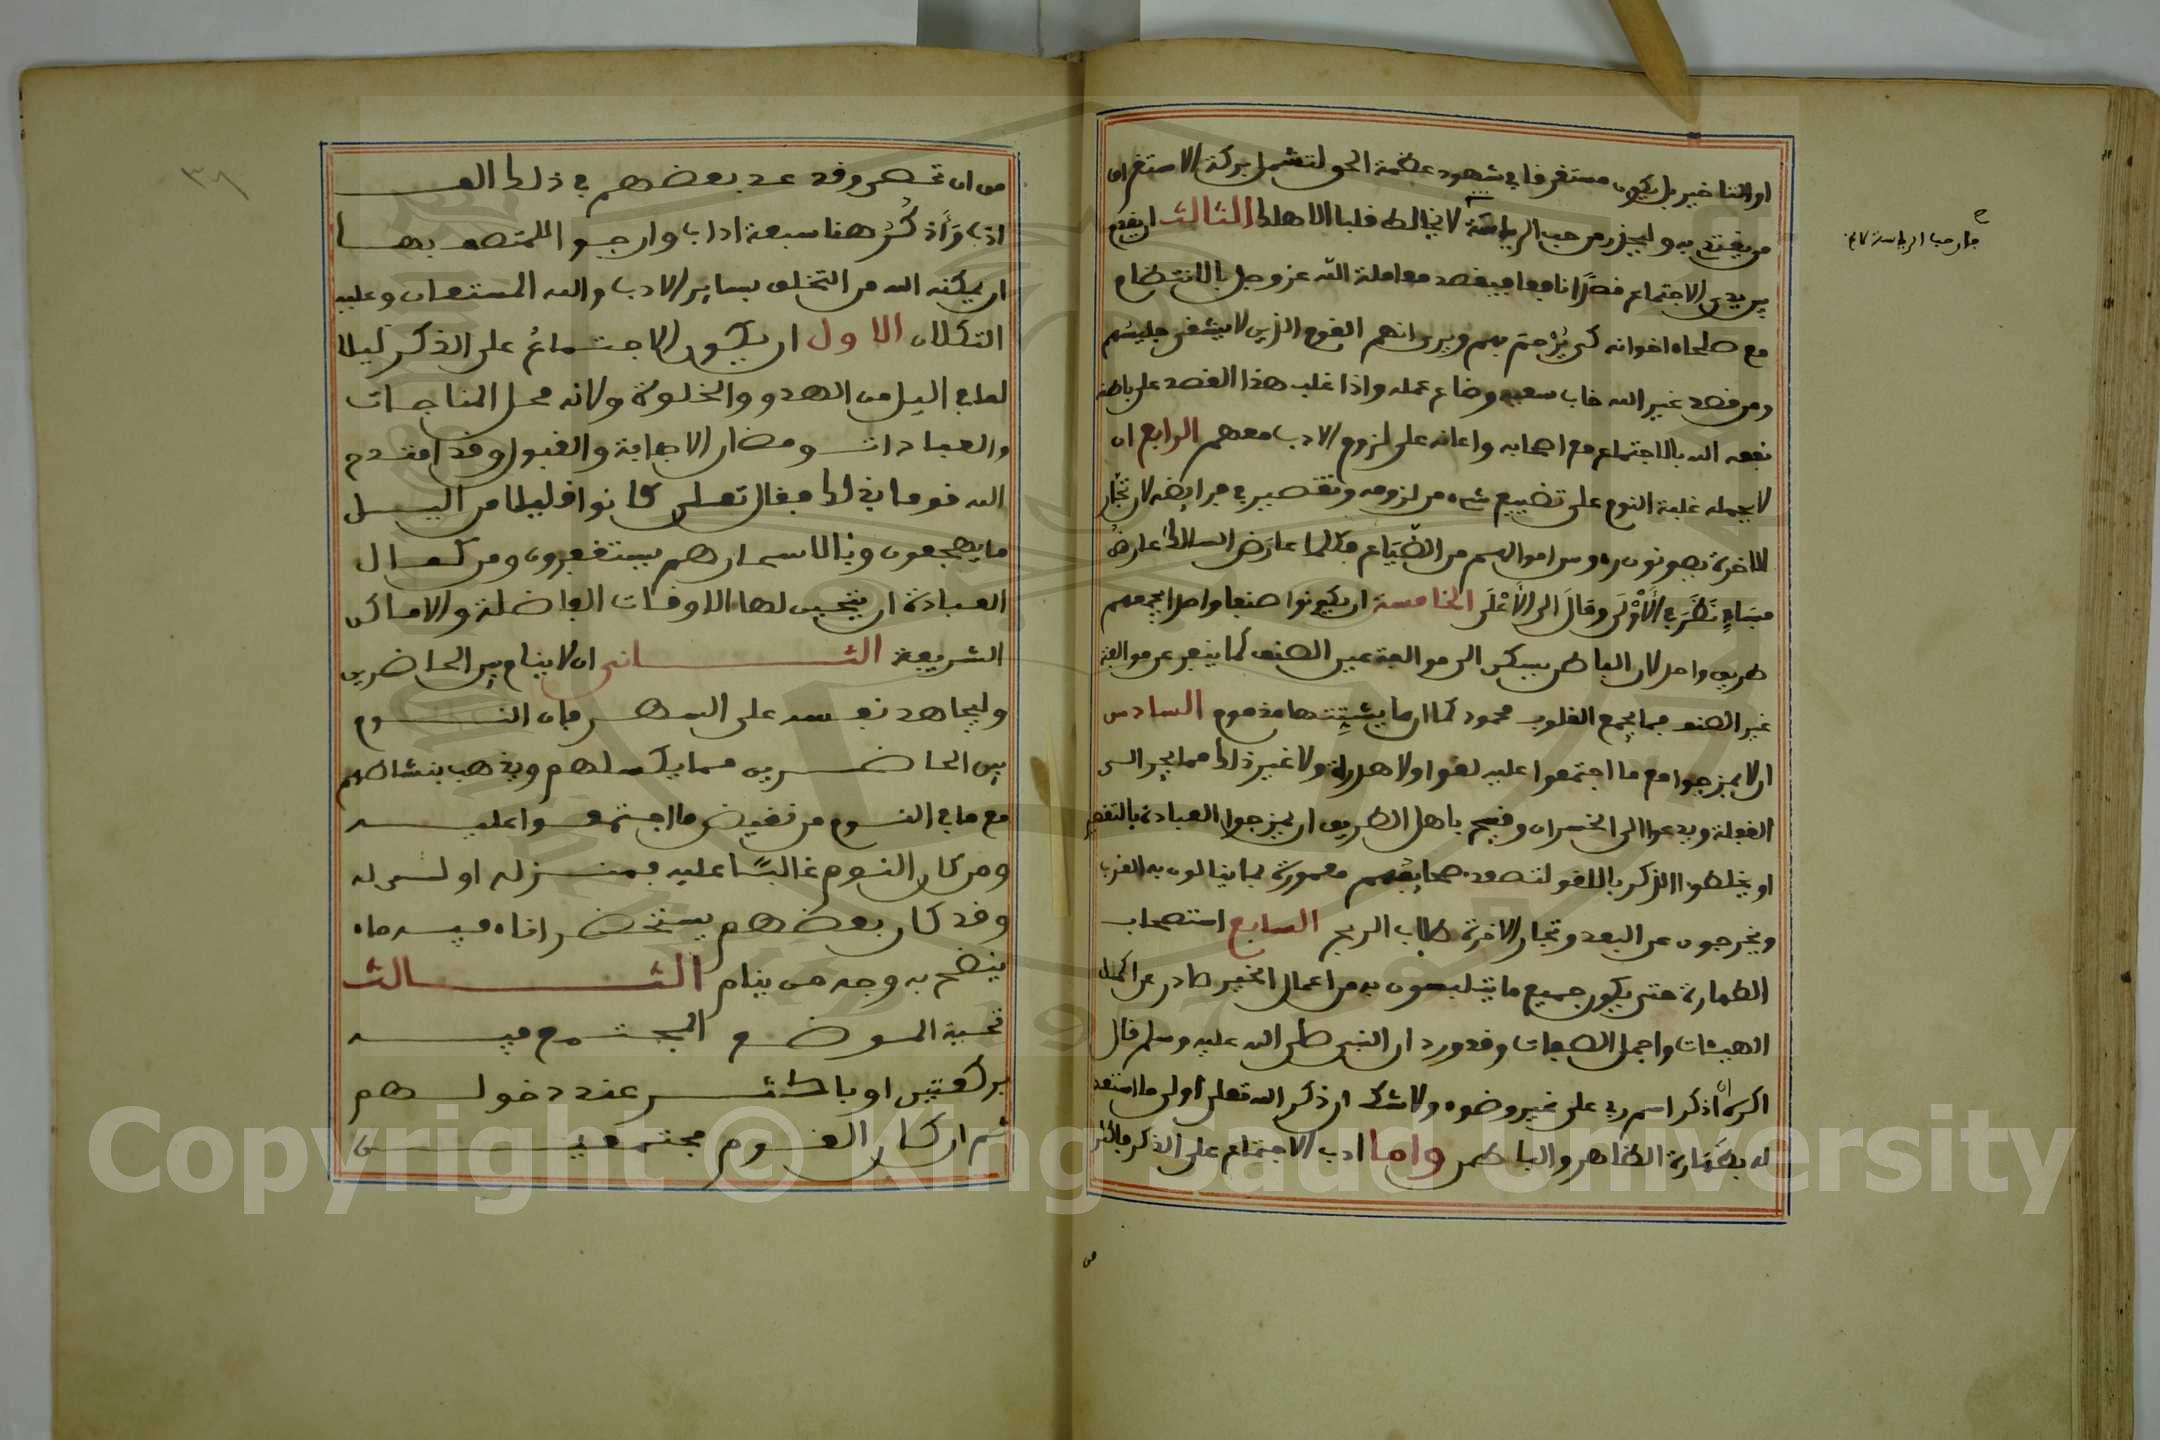 او التاخير بل يكون مستغرفا في شهود عظمة الحق لتشمل بركة الاستغراق
من يقتدي به وليحذر من حب الرياسة لا يخالط قلبا الا هلك الثالث ان يقع
يريدي الاجتماع قصدا نافعا فيقصد معاملة الله عز وجل بالانتظام
مع صلحاء اخوانه كي يرحم بهم ويرى انهم القوم الذين لا يشقى جليسهم
ومن قصد غير الله خاب سعيه وضاع عمله واذا غلب هذا القصد على باطنه
نفعه الله بالاجتماع مع اصحابه واعانه على لزوم الادب معهم الرابع ان
لا يحمله غلبة النوم على تضييع شيء من لزومه وتقصير في فرايضه لان تجار
الاخرة يصونون رءوس اموالهم من الضياع فكلما عارض السالك عارض
نظر في الاولى وقال الى الاعلى الخامسة ان يكونوا صنفا واحدا يجمعهم
طريق واحد لان الباطن يسكن الى موالفة عين الصنف كما ينفر عن موالفة
غير الصنف مما يجمع القلوب محمود كما ان ما يشتتها مذموم السادس
ان لا يمزجوا مع ما اجتمعوا عليه لغوا ولا هدرة ولا غير ذلك مما يجر الى
الغفلة ويدعوا الى الخسران وقبيح باهل الطريق ان يمزجوا العبادة بالتقصير
او يخلطوا الذكر باللغو لتصعد صحايفهم معمورة بما ينالون به القرب
ويخرجون عن البعد وتجار الاخرة طلاب الربح السابع استصحاب
الطهارة حتى يكون جميع ما يتلبسون به من اعمال الخير صادر عن اكمل
الهيئات واجمل الصفات وقد ورد ان النبي صلى الله عليه وسلم قال
اكره ان اذكر اسم ربي على غير وضوء ولا شك ان ذكر الله تعلى اولى ما استعد
له بطهارة الظاهر والباطن واما ادب الاجتماع على الذكر فاكثر
من
حب الرياسة
من ان تحصر وقد عد بعضهم في ذلك الف
ادب وأذكر هنا سبعة اداب وارجوا للمتصف بها
ان يمكنه الله من التخلق بساير الادب والله المستعان وعليه
التكلان الاول ان يكون الاجتماع على الذكر ليلا
لما في اليل من الهدو والخلوة ولانه محل المناجات
والعبادات ومضان الاجابة والقبول وقد امتدح
الله قوما بذلك فقال تعلى كانوا قليلا من اليل
ما يهجعون وبالاسحار هم يستغفرون ومن كمال
العبادة ان يتحين لها الاوقات الفاضلة والاماكن
الشريفة الثاني ان لا ينام بين الحاضرين
وليجاهد نفسه على السهر فان النوم
بين الحاضرين مما يكسلهم ويذهب بنشاطهم
مع ما في النوم من نقيض ما اجتمعوا عليه
ومن كان النوم غالبا عليه فمنزله اولى له
وقد كان بعضهم يستحضر اناء فيه ماء
ينضح به وجه من ينام الثالث
تحية الموضع المجتمع فيه
بركعتين او باكثر عند دخولهم
ثم ان كان القوم مجتمعين
٣٨